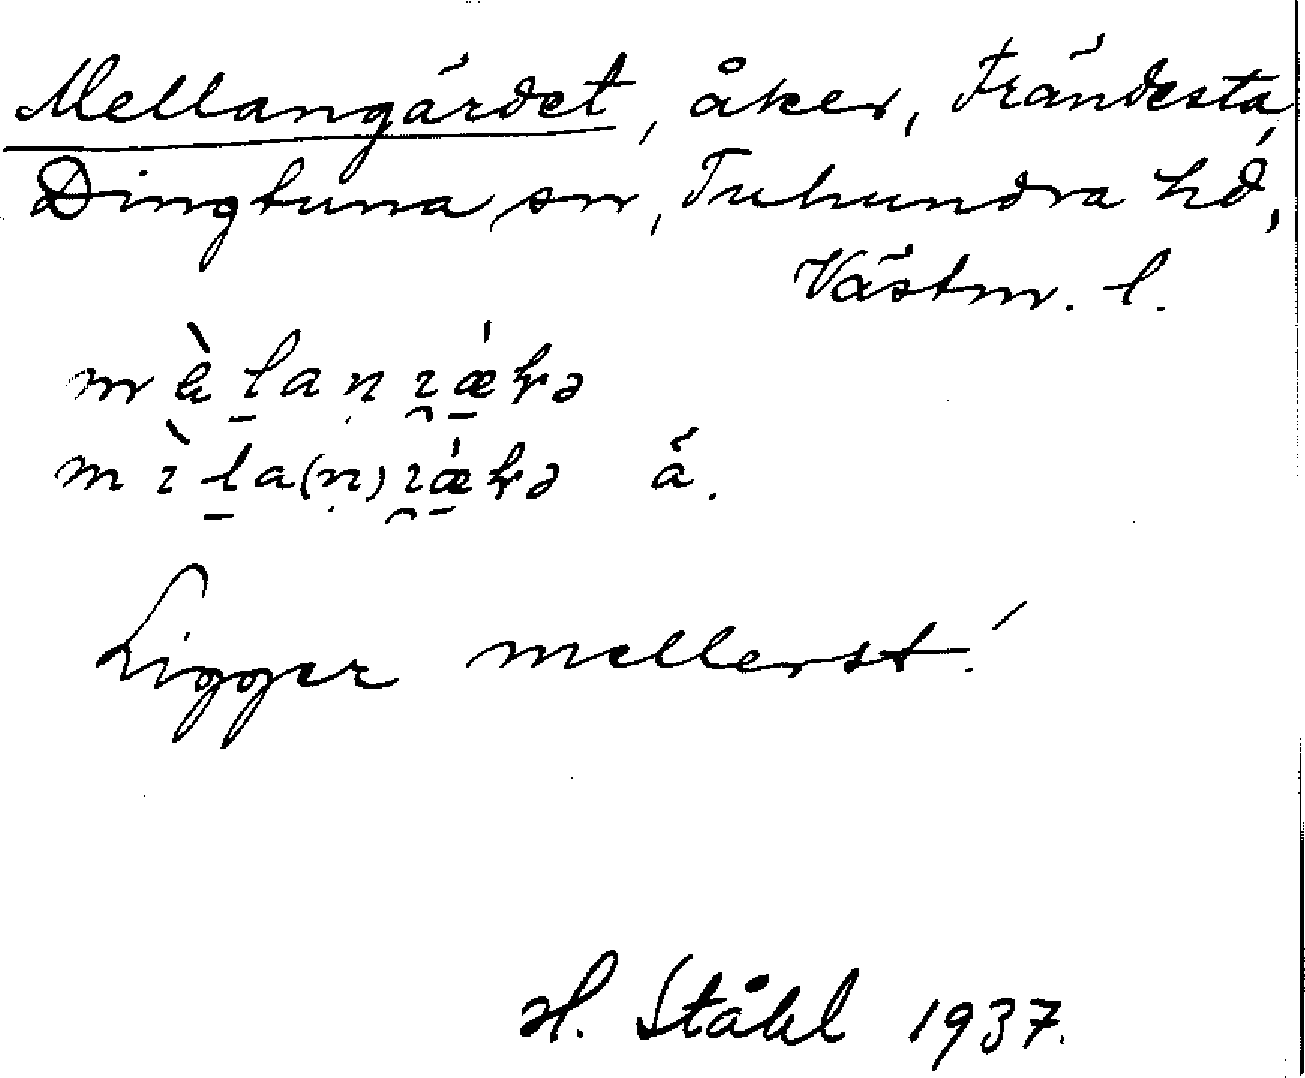 Mellangärdet, åker, Frändesta,
Dingtuna sn, Tuhundra hd,
Västm. l.
ä.
Ligger mellerst.
H. Ståhl 1937.